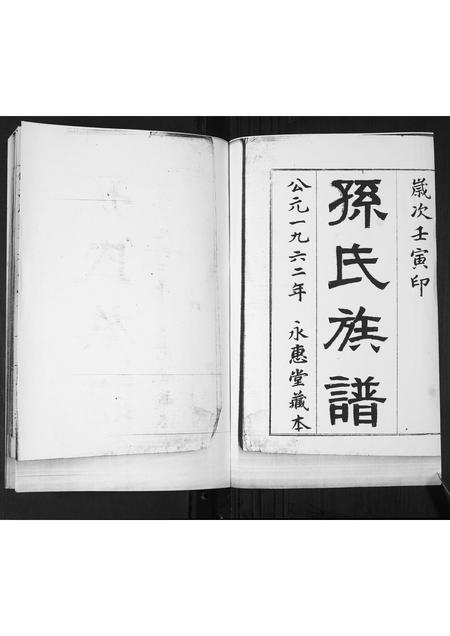 歲次壬寅印
孫氏族譜
公元一九六二年 永惠堂藏本